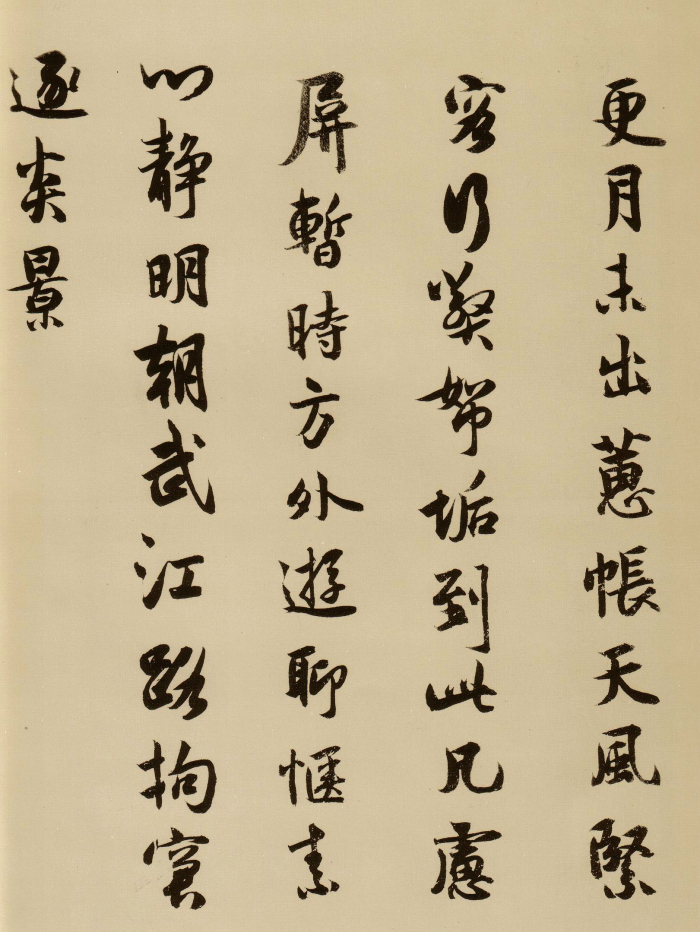 更月未出蕙帳天風緊
客行帤垢到此凡慮
屏暫時方外遊聊愜素
心静明朝武江路拘
逐炎景